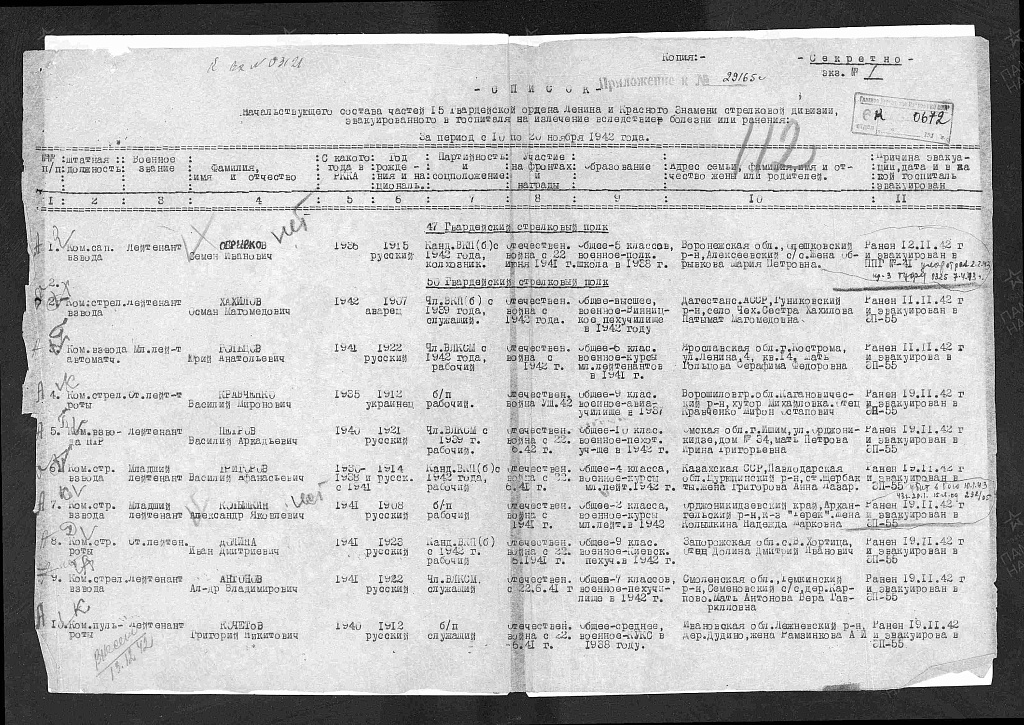 Копия:-
- Секретно -
экз. № I
Приложение к № 29165с
- СПИСОК -
Начальствующего состава частей 15 Гвардейской ордена Ленина и Красного Знамени стрелковой дивизии,
эвакуированного в госпиталя на излечение вследствие болезни или ранения.
0672
За период с 10 по 20 ноября 1942 года.
112
№№ п/п: Штатная должность: Военное звание : Фамилия, имя и отчество : С какого года в РККА : Год рождения и националь. : Партийность и соцположение : Участие на фронтах и награды : образование : Адрес семьи, фамилия, имя и отчество жены или родителей. : Причина эвакуации, дата и в какой госпиталь эвакуирован
I : 2 : 3 : 4 : 5 : 6 : 7 : 8 : 9 : 10 : II
47 Гвардейский стрелковый полк
нет
1. Ком.сап. Лейтенант ОБРЫВКОВ 1936 1915 Канд.ВКП(б)с отечествен. общее-5 классов, Воронежская обл., Ранен 12.II.42 г
взвода Семен Иванович русский 1942 года, война с 22 военное-полк. р-н,Алексеевский с/с.жена Об- и эвакуирован в
колхозник. июня 1941 г. школа в 1938 г. рывкова Мария Петровна. ППГ №-41
50 Гвардейский стрелковый полк
2. Ком.стрел. Лейтенант ХАХИЛОВ 1942 1907 Чл.ВКП(б) с отечествен. общее-высшее, Дагестанс.АССР,Гуниковский Ранен II.II.42 г
взвода Осман Магомедович аварец 1939 года, война с военное-Винниц- р-н,село Чох.Сестра Хахилова и эвакуирован в
служащий. 1942 года. кое пехучилище Патымат Магомедовна. ЭП-55
в 1942 году
3. Ком.взвода Мл.лей-т ГОЛЬЦОВ 1941 1922 Чл.ВЛКСМ с отечествен. общее-6 класс. Ярославская обл.г.Кострома, Ранен II.II.42 г
автоматч. Юрий Анатольевич русский 1942 года, война с военное-курсы ул.Ленина,4, кв.14, мать и эвакуирован в
рабочий 1942 г. мл.лейтенантов Гольцова Серафима Федоровна ЭП-55
в 1941 г.
4. Ком.стрел. Ст.лейт-т КРАВЧЕНКО 1935 1912 б/п отечествен. общее-9 класс. Ворошиловгр.обл.Каганович- Ранен 19.II.42 г
роты Василий Миронович украинец рабочий. война военное-авиа- ский р-н,хутор Михайловка.Отец и эвакуирован в
училище в 1937 Кравченко Мирон Остапович ЭП-55
5. Ком.взво- Лейтенант ПЕТРОВ 1940 1921 Чл.ВЛКСМ с отечествен. общее-10 класс. Омская обл.г.Ишим,ул.Орджони- Ранен 19.II.42 г
да ПТР Василий Аркадьевич русский 1939 г. война с 22. военное-пехот. кидзе,дом № 34,мать Петрова и эвакуирован в
рабочий 6.42 г. уч-ще в 1942 г. Ирина Григорьевна ЭП-55
6. Ком.стр. Младший ГРИГОРОВ 1936- 1914 Канд.ВКП(б)с отечествен. общее-4 класса, Казахская ССР,Павлодарская Ранен 19.II.42 г
взвода лейтенант Василий Афанасьевич 1938 и русск. 1942 года, война с 22. военное-курсы обл. р-н,ст.Щербак и эвакуирован в
с 1941 рабочий 6.41 г. мл.лейт.1942 г. ты.жена Григорова Анна Лазар. ЭП-55
нет
7. Ком.стр. Младший КОЛЫШКИН 1941 1908 б/п отечествен. общее-2 класса, Орджоникидзевский край,Архан- Ранен 19.II.42 г
взвода лейтенант Александр Яковлевич русский рабочий война с военное-курсы гельский р-н,к-з "Терек".жена и эвакуирован в
1941 г. мл.лейт.в 1942 Колышкина Надежда Марковна ЭП-55
8. Ком.стр. Ст.лейтен. ДОЛИНА 1941 1923 Канд.ВКП(б) отечествен. общее-9 клас. Запорожская обл.с.В.Хортица, Ранен 19.II.42 г
роты Иван Дмитриевич русский с 1942 г. война с 22. военное-Киевск. Отец Долина Дмитрий Иванович и эвакуирован в
рабочий 6.1941 г. пехуч.в 1942 г. ЭП-55
9. Ком.стрел. Лейтенант АНТОНОВ 1941 1922 Чл.ВЛКСМ, отечествен. общее-7 классов, Смоленская обл.,Темкинский Ранен 19.II.42 г
взвода Ал-др Владимирович русский служащий с 22.6.41 г военное-пехучи- р-н,Семеновский с/с,дер.Кар- и эвакуирован в
лище в 1942 г. пово.Мать Антонова Вера Гав- ЭП-55
рилловна
10. Ком.пуль- Лейтенант КОЧЕТОВ 1940 1912 б/п отечествен. общее-среднее, Ивановская обл.Лежневский р-н, Ранен 19.II.42 г
роты Григорий Никитович русский служащий война с 22. военное-КУКС в дер.Дудино,жена Рамвинкова А И и эвакуирова в
-6.41 г. 1938 году. ЭП-55
13.12.42